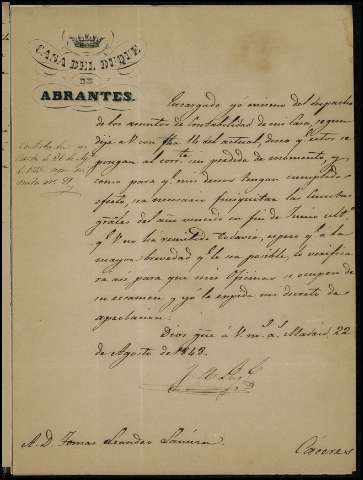 CASA DEL DUQUE
DE
ABRANTES.
Encargado yo mismo del despacho
de los asuntos de Contabilidad de mi Casa, segun
dije a V con fha 14 del actual, deseo q.e estos se
pongan al corr.te sin perdida de momento, y
como para q.e mis deseos tengan cumplido
efecto, es necesario finiquitar las Cuentas
grales del año vencido en fin de Junio ult.o
q.e V no ha remitido todavia, espero q.e a la
mayor brevedad q.e le sea posible, lo verifica
rá asi para que mis Oficinas se ocupen de
su examen y yo le expida mi decreto de
aprobacion.
Dios gue á V m.s a.s Madrid 22
de Agosto de 1848.
A D. Tomas Leandro
Cáceres